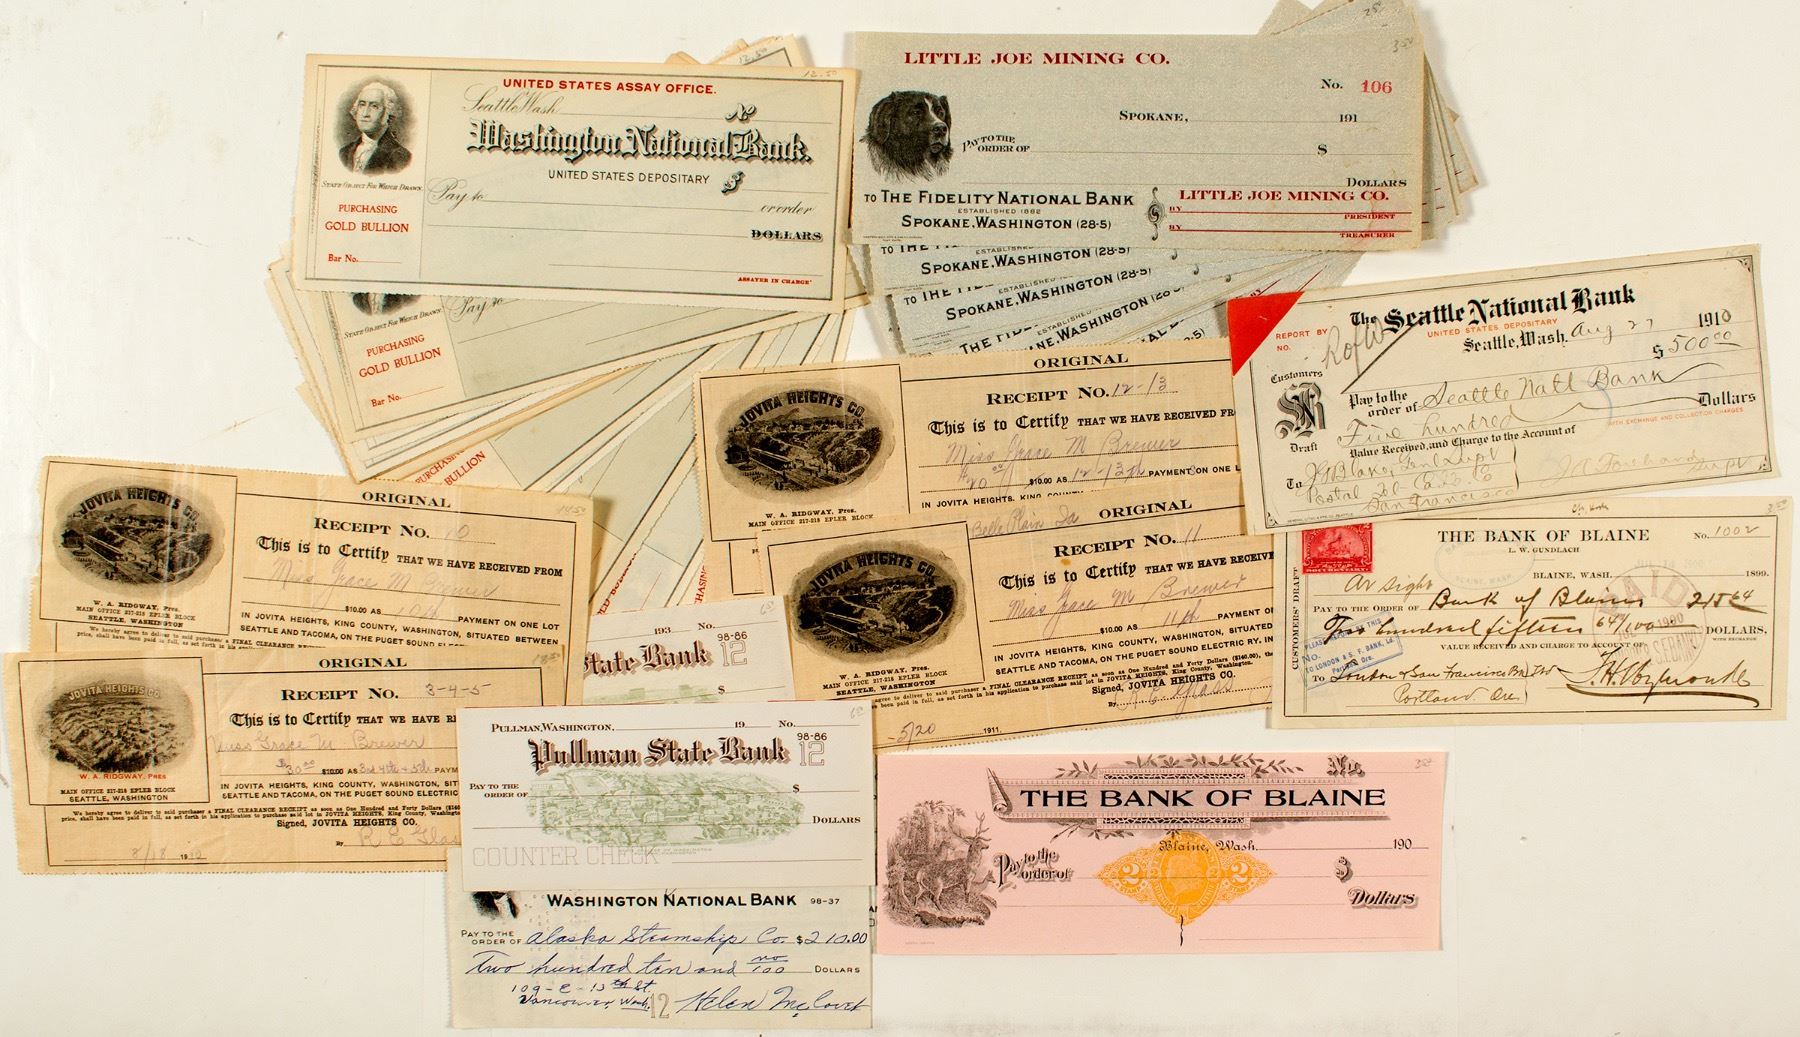 12.50
UNITED STATES ASSAY OFFICE.
Seattle Wash
No
Washington National Bank.
UNITED STATES DEPOSITARY
$
STATE OBJECT FOR WHICH DRAWN
PURCHASING
GOLD BULLION
Bar No.
Pay to
or order
DOLLARS
ASSAYER IN CHARGE
STATE OBJECT FOR WHICH DRAWN
PURCHASING
GOLD BULLION
Bar No.
Pay to
PURCHASING
BULLION
12.50
LITTLE JOE MINING CO.
3.50
No. 106
SPOKANE, 191
PAY TO THE
ORDER OF $
DOLLARS
TO THE FIDELITY NATIONAL BANK
ESTABLISHED 1882
SPOKANE, WASHINGTON (28-5)
LITTLE JOE MINING CO.
BY PRESIDENT
BY TREASURER
ESTABLISHED
SPOKANE, WASHINGTON (28-5)
TO THE
ESTABLISHED
SPOKANE, WASHINGTON (28-5)
TO THE
ESTABLISHED
WASHINGTON (28-5)
THE
REPORT BY
NO.
The Seattle National Bank
UNITED STATES DEPOSITARY
Seattle, Wash. Aug 27 1910
$500.00
Customers
Draft
Pay to the
order of Seattle Natl Bank
Five hundred Dollars
WITH EXCHANGE AND COLLECTION CHARGES
Value Received, and Charge to the Account of
To J J Blake, Genl Supt
Postal Tel-Ca. Co
San Francisco
ORIGINAL
JOVITA HEIGHTS CO.
RECEIPT NO. 12-13
This is to Certify THAT WE HAVE RECEIVED FR
Miss Grace M Brewer
$10.00 AS 12-13th PAYMENT ON ONE L
IN JOVITA HEIGHTS, KING COUNTY
W. A. RIDGWAY, Pres.
MAIN OFFICE 217-218 EPLER BLOCK
Belle Plain Ia
ORIGINAL
JOVITA HEIGHTS CO.
RECEIPT NO. 11
This is to Certify THAT WE HAVE RECEIVE
Miss Grace M Brewer
$10.00 AS 11th PAYMENT O
IN JOVITA HEIGHTS, KING COUNTY, WASHINGTON, SITUATED
SEATTLE AND TACOMA, ON THE PUGET SOUND ELECTRIC RY. IN
W. A. RIDGWAY, Pres.
MAIN OFFICE 217-218 EPLER BLOCK
SEATTLE, WASHINGTON
Signed, JOVITA HEIGHTS CO.
By R E Glass
5/20 1911.
THE BANK OF BLAINE
L. W. GUNDLACH
No. 1002
3.50
BLAINE, WASH. 1899.
CUSTOMERS' DRAFT
At Sight
PAY TO THE ORDER OF Bank of Blaine 215 64
Two hundred fifteen 64/100 DOLLARS,
WITH EXCHANGE
VALUE RECEIVED AND CHARGE TO ACCOUNT OF
PAID
TO LONDON & S. F. BANK, Ld.
Portland Ore.
To London & San Francisco Bk Ltd
Portland Ore.
ORIGINAL
14.50
JOVITA HEIGHTS CO.
RECEIPT NO. 10
This is to Certify THAT WE HAVE RECEIVED FROM
Miss Grace M Brewer
$10.00 AS 10th PAYMENT ON ONE LOT
IN JOVITA HEIGHTS, KING COUNTY, WASHINGTON, SITUATED BETWEEN
SEATTLE AND TACOMA, ON THE PUGET SOUND ELECTRIC
W. A. RIDGWAY, Pres.
MAIN OFFICE 217-218 EPLER BLOCK
SEATTLE, WASHINGTON
We hereby agree to deliver to said purchaser a FINAL CLEARANCE RECEIPT
ORIGINAL
JOVITA HEIGHTS CO.
RECEIPT NO. 3-4-5
This is to Certify THAT WE HAVE R
Miss Grace M Brewer
$30.00 $10.00 AS 3rd 4th + 5th PAYM
IN JOVITA HEIGHTS, KING COUNTY, WASHINGTON, SIT
SEATTLE AND TACOMA, ON THE PUGET SOUND ELECTRIC
W. A. RIDGWAY, PRES
MAIN OFFICE 217-218 EPLER BLOCK
SEATTLE, WASHINGTON
We hereby agree to deliver to said purchaser a FINAL CLEARANCE RECEIPT as soon as One Hundred and Forty Dollars
price, shall have been paid in full, as set forth in his application to purchase said lot in JOVITA HEIGHTS, King County, Washington
Signed, JOVITA HEIGHTS CO.
By R E Glas
8/18 1910
193 No.
98-86
12
State Bank
$
PULLMAN, WASHINGTON, 19 No.
Pullman State Bank
98-86
12
PAY TO THE
ORDER OF $
DOLLARS
COUNTER CHECK
WASHINGTON NATIONAL BANK 98-37
PAY TO THE
ORDER OF Alaska Steamship Co. $210.00
Two hundred ten and no/100 DOLLARS
109-E-13th St.
Vancouver, Wash.
12 Helen McCovet
THE BANK OF BLAINE
No.
Blaine, Wash. 190
Pay to the
order of $
2 2
Dollars